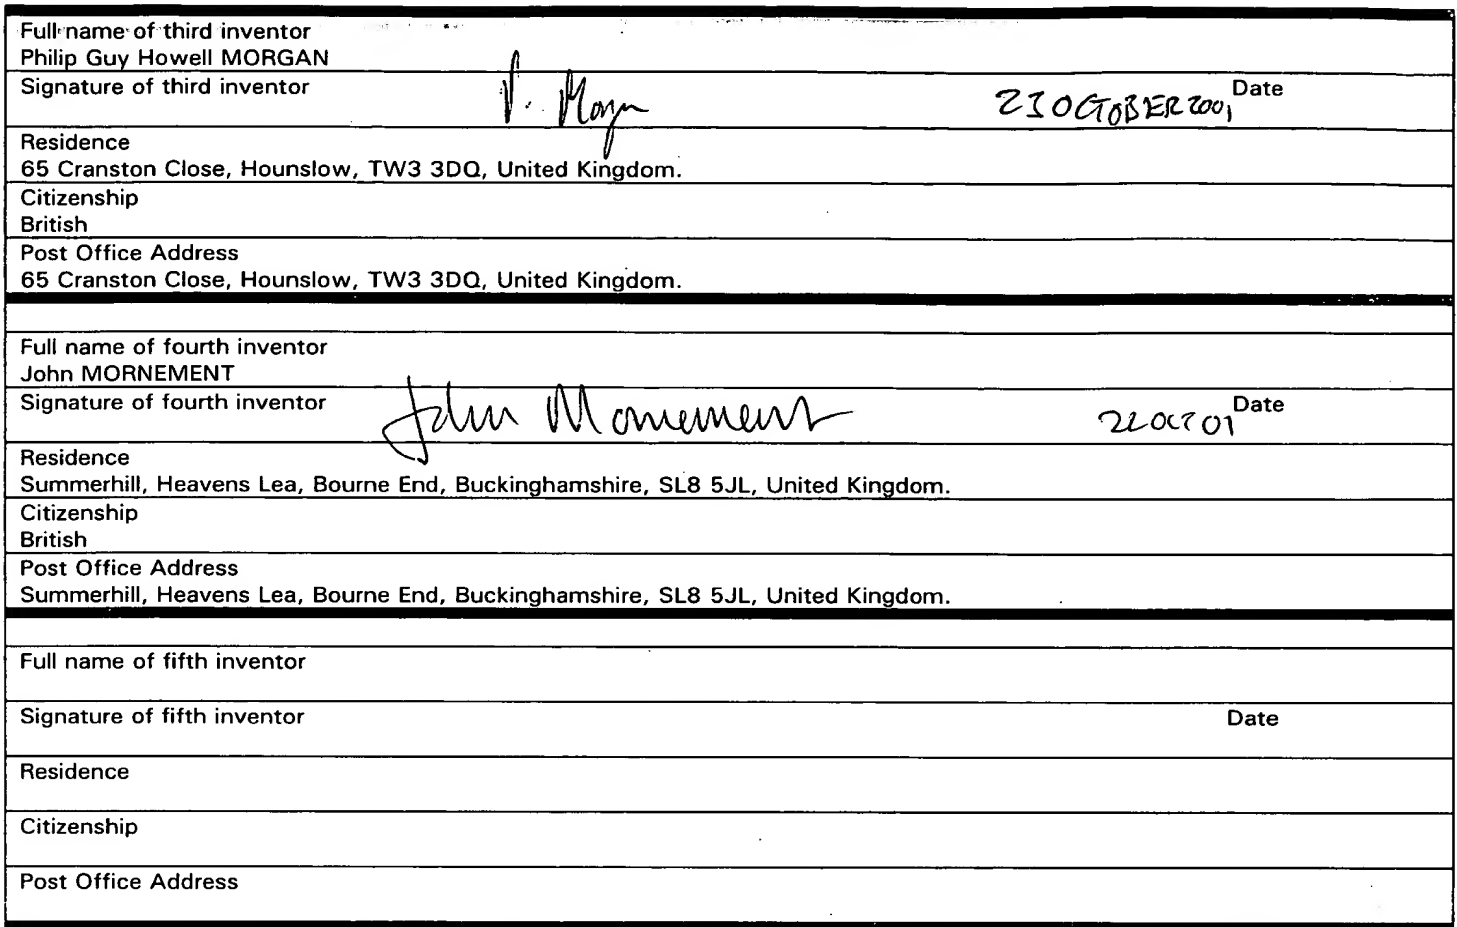 Full name of third inventor
Philip Guy Howell MORGAN
Signature of third inventor P. Morgan 23 OCTOBER 2001 Date
Residence
65 Cranston Close, Hounslow, TW3 3DQ, United Kingdom.
Citizenship
British
Post Office Address
65 Cranston Close, Hounslow, TW3 3DQ, United Kingdom.
Full name of fourth inventor
John MORNEMENT
Signature of fourth inventor John Mornement 22 OCT 01 Date
Residence
Summerhill, Heavens Lea, Bourne End, Buckinghamshire, SL8 5JL, United Kingdom.
Citizenship
British
Post Office Address
Summerhill, Heavens Lea, Bourne End, Buckinghamshire, SL8 5JL, United Kingdom.
Full name of fifth inventor
Signature of fifth inventor Date
Residence
Citizenship
Post Office Address